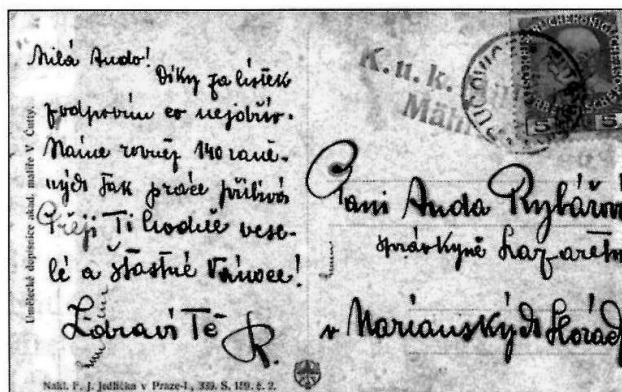 Milá Ando!
Díky za lístek
podpovím co nejdřív.
Máme rovněž 140 raně-
ných tak práce přibývá
Přeji Ti hodně vese-
lé a šťastné Vánoce!
Zdraví Tě R.
Umělecké dopisnice akad. malíře V. Čutty.
Nakl. F. J. Jedlička v Praze-I., 339. S. 159. č. 2.
K. u. k.
Mäh
5 5
Paní Anda Rybářová
správkyně Lazaretu
v Mariánských Horách